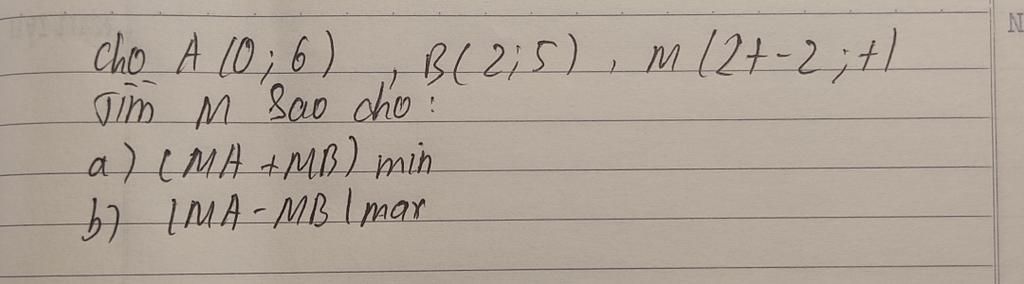 Cho A (0; 6) , B(2; 5) , M (2t-2; t)
Tìm M sao cho:
a) (MA + MB) min
b) |MA - MB| max